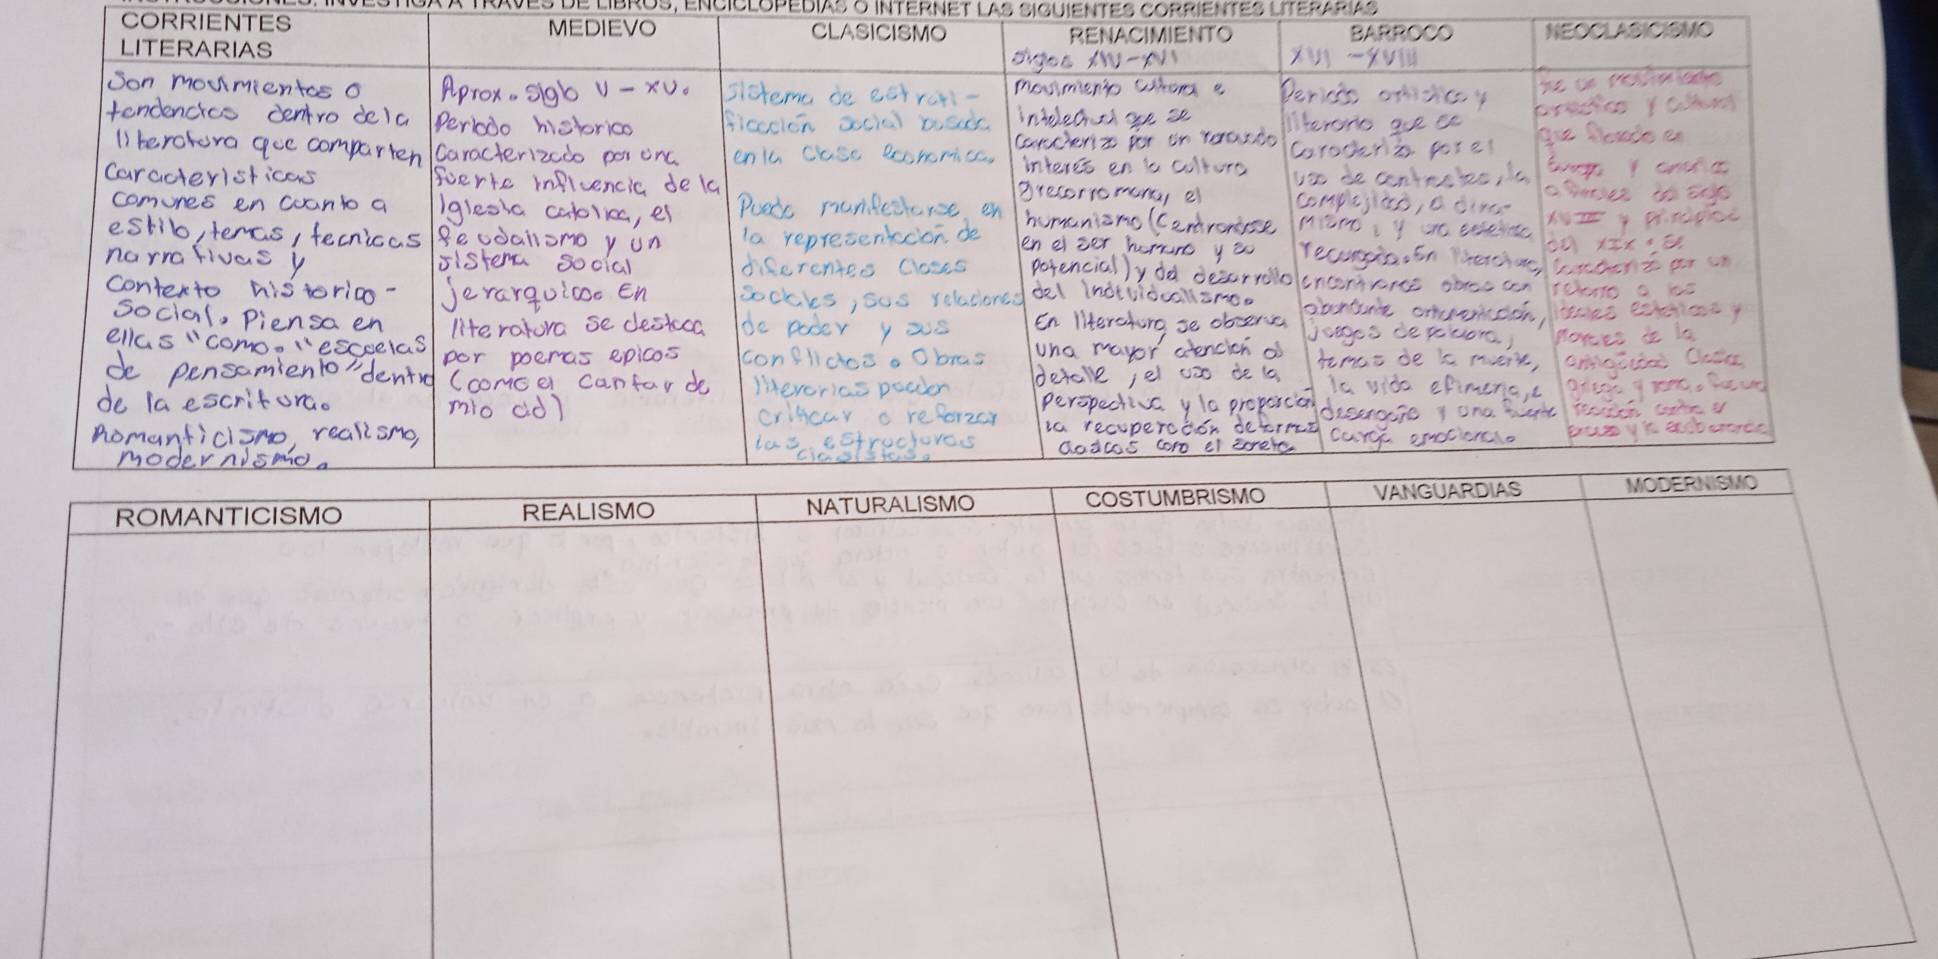 INVESTIGA A TRAVES DE LIBROS, ENCICLOPEDIAS O INTERNET LAS SIGUIENTES CORRIENTES LITERARIAS
CORRIENTES
LITERARIAS
Son movimientos o
tendencias dentro de la
literatura que comparten
Caracteristicas
comunes en cuanto a
estilo, temas, tecnicas
narrativas y
contexto historico-
Social. Piensa en
ellas "como. "escuelas
de pensamiento" dentro
de la escritura.
Romanticismo, realismo,
modernismo.
MEDIEVO
Aprox. siglo V - XV.
Periodo historico
Caracterizado por una
fuerte influencia de la
iglesia catolica, el
feudalismo y un
sistema social
jerarquico. En
literatura se destaca
por poemas epicos
(como el cantar de
mio cid)
CLASICISMO
Sistema de estrati-
ficacción social basada
en la clase economica.
Puede manifestarse en
la representacion de
diferentes clases
sociales, sus relaciones
de poder y sus
conflictos. Obras
literarias pueden
criticar o reforzar
las estructuras
clasistas.
RENACIMIENTO
siglos XIV-XVI
movimiento cultural e
intelectual que se
caracterizo por un renovado
interés en la cultura
grecorromana, el
humanismo (Centrandose
en el ser humano y su
potencial) y del desarrollo
del individualismo.
En literatura se observa
una mayor atención al
detalle, el uso de la
perspectiva y la proporción
la recuperación de formas
clasicas como el soneto
BARROCO
XVI - XVIII
Periodo artistico y
literario que se
Caracteriza por el
uso de contrastes, la
complejidad, a dina-
mismo, y una estetica
recargada. En literatura
encontramos obras con
abundante
juegos de palabra,
temas de la muerte,
la vida efimera, e
desengaño y una fuerte
carga emocional.
NEOCLASICISMO
y cultural
Europa y
XVIII y principios
del XIX. Se
Caracterizó por un
retorno a los
ideales esteticos y
de la
antigüedad clasica
griega y romana. Fue una
reacción contra el
ROMANTICISMO
REALISMO
NATURALISMO
COSTUMBRISMO
VANGUARDIAS
MODERNISMO